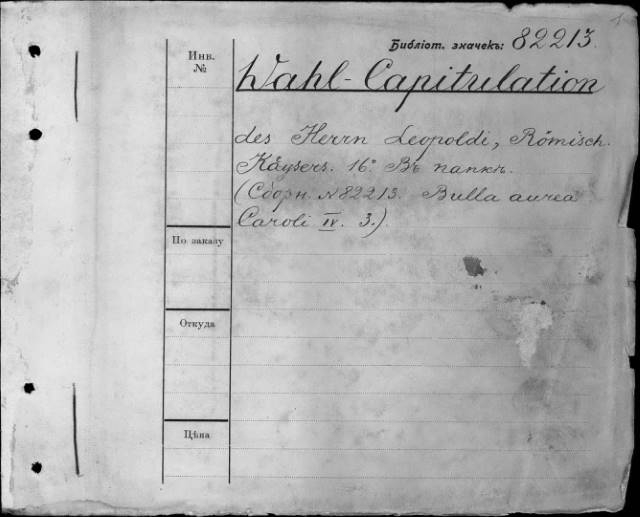 Библіот. значекъ: 82213.
Инв.
№
Wahl-Capitulation
des Herrn Leopoldi, Römisch.
Käysers. 16° Въ папкѣ.
(Сборн. №82213. Bulla aurea
Caroli IV. 3.)
По заказу
Откуда
Цѣна